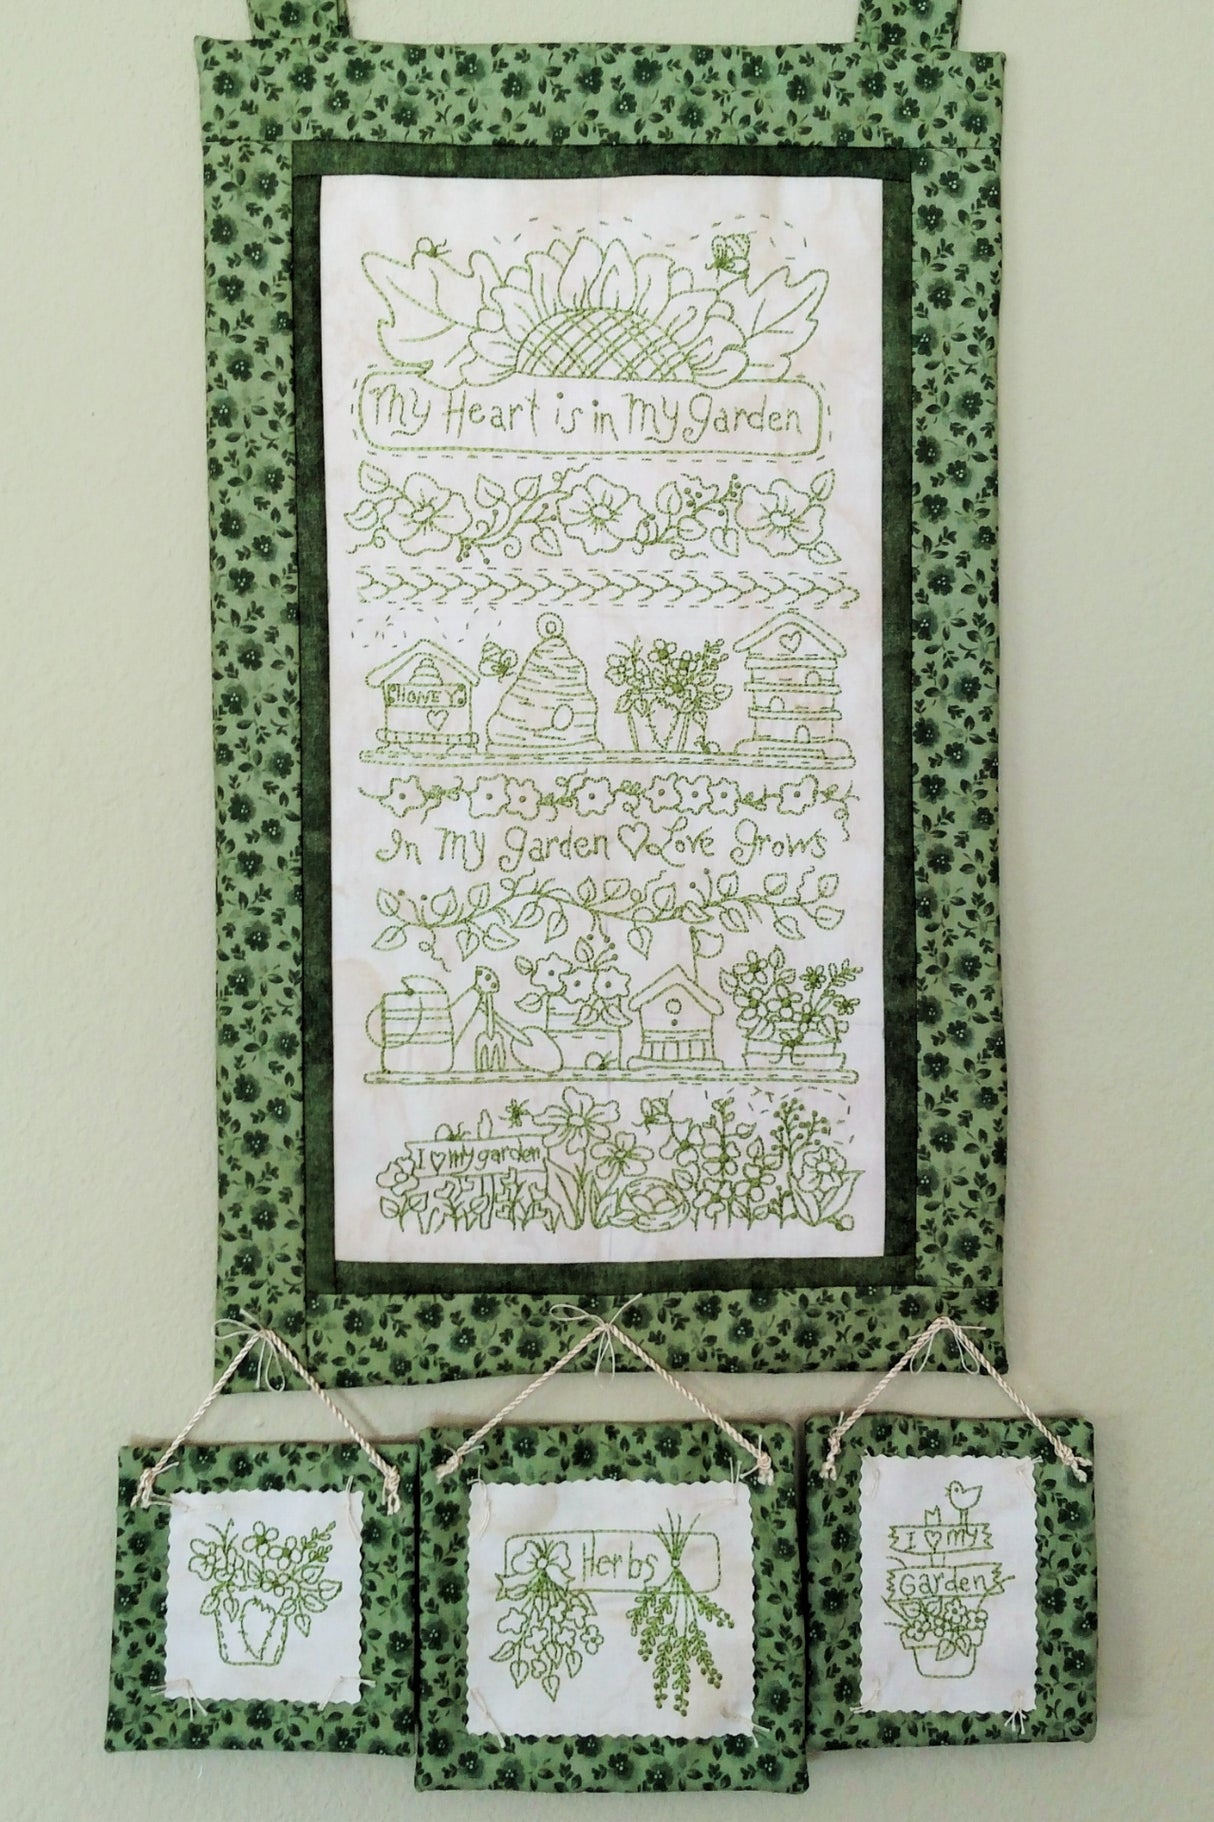 My Heart is in My garden
HONEY
In My garden ♡ Love Grows
I ♡ my garden
Herbs
I ♡ my
Garden